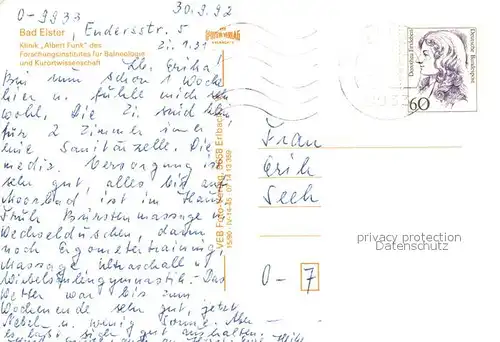 O-9933
30.9.92
Bad Elster, Endersstr. 5
Klinik „Albert Funk" des
Forschungsinstitutes für Balneologie
und Kurortwissenschaft
Zi. 1.31
Lb. Erika!
Bin nun schon 1 Woche
hier u. fühle mich sehr
wohl. Die Zi. sind klein,
für 2 Zimmer immer
eine Sanitärzelle. Die
mediz. Versorgung ist
sehr gut, alles bis auf
Moorbad ist im Haus.
Früh Bürstenmassage u.
Wechselduschen, dann
noch Ergometertraining,
Massage Ultraschall u.
Wirbelsäulengymnastik. Das
Wetter war bis zum
Wochenende sehr gut, jetzt
Nebel u. wenig Sonne. Aber
es läßt sich gut aushalten.
VEB Foto-Verlag, 9658 Erlbach
15/90 IV-14-45 01 14 13 359
Dorothea Erxleben
Deutsche Bundespost
60
Frau
O-7
privacy protection
Datenschutz